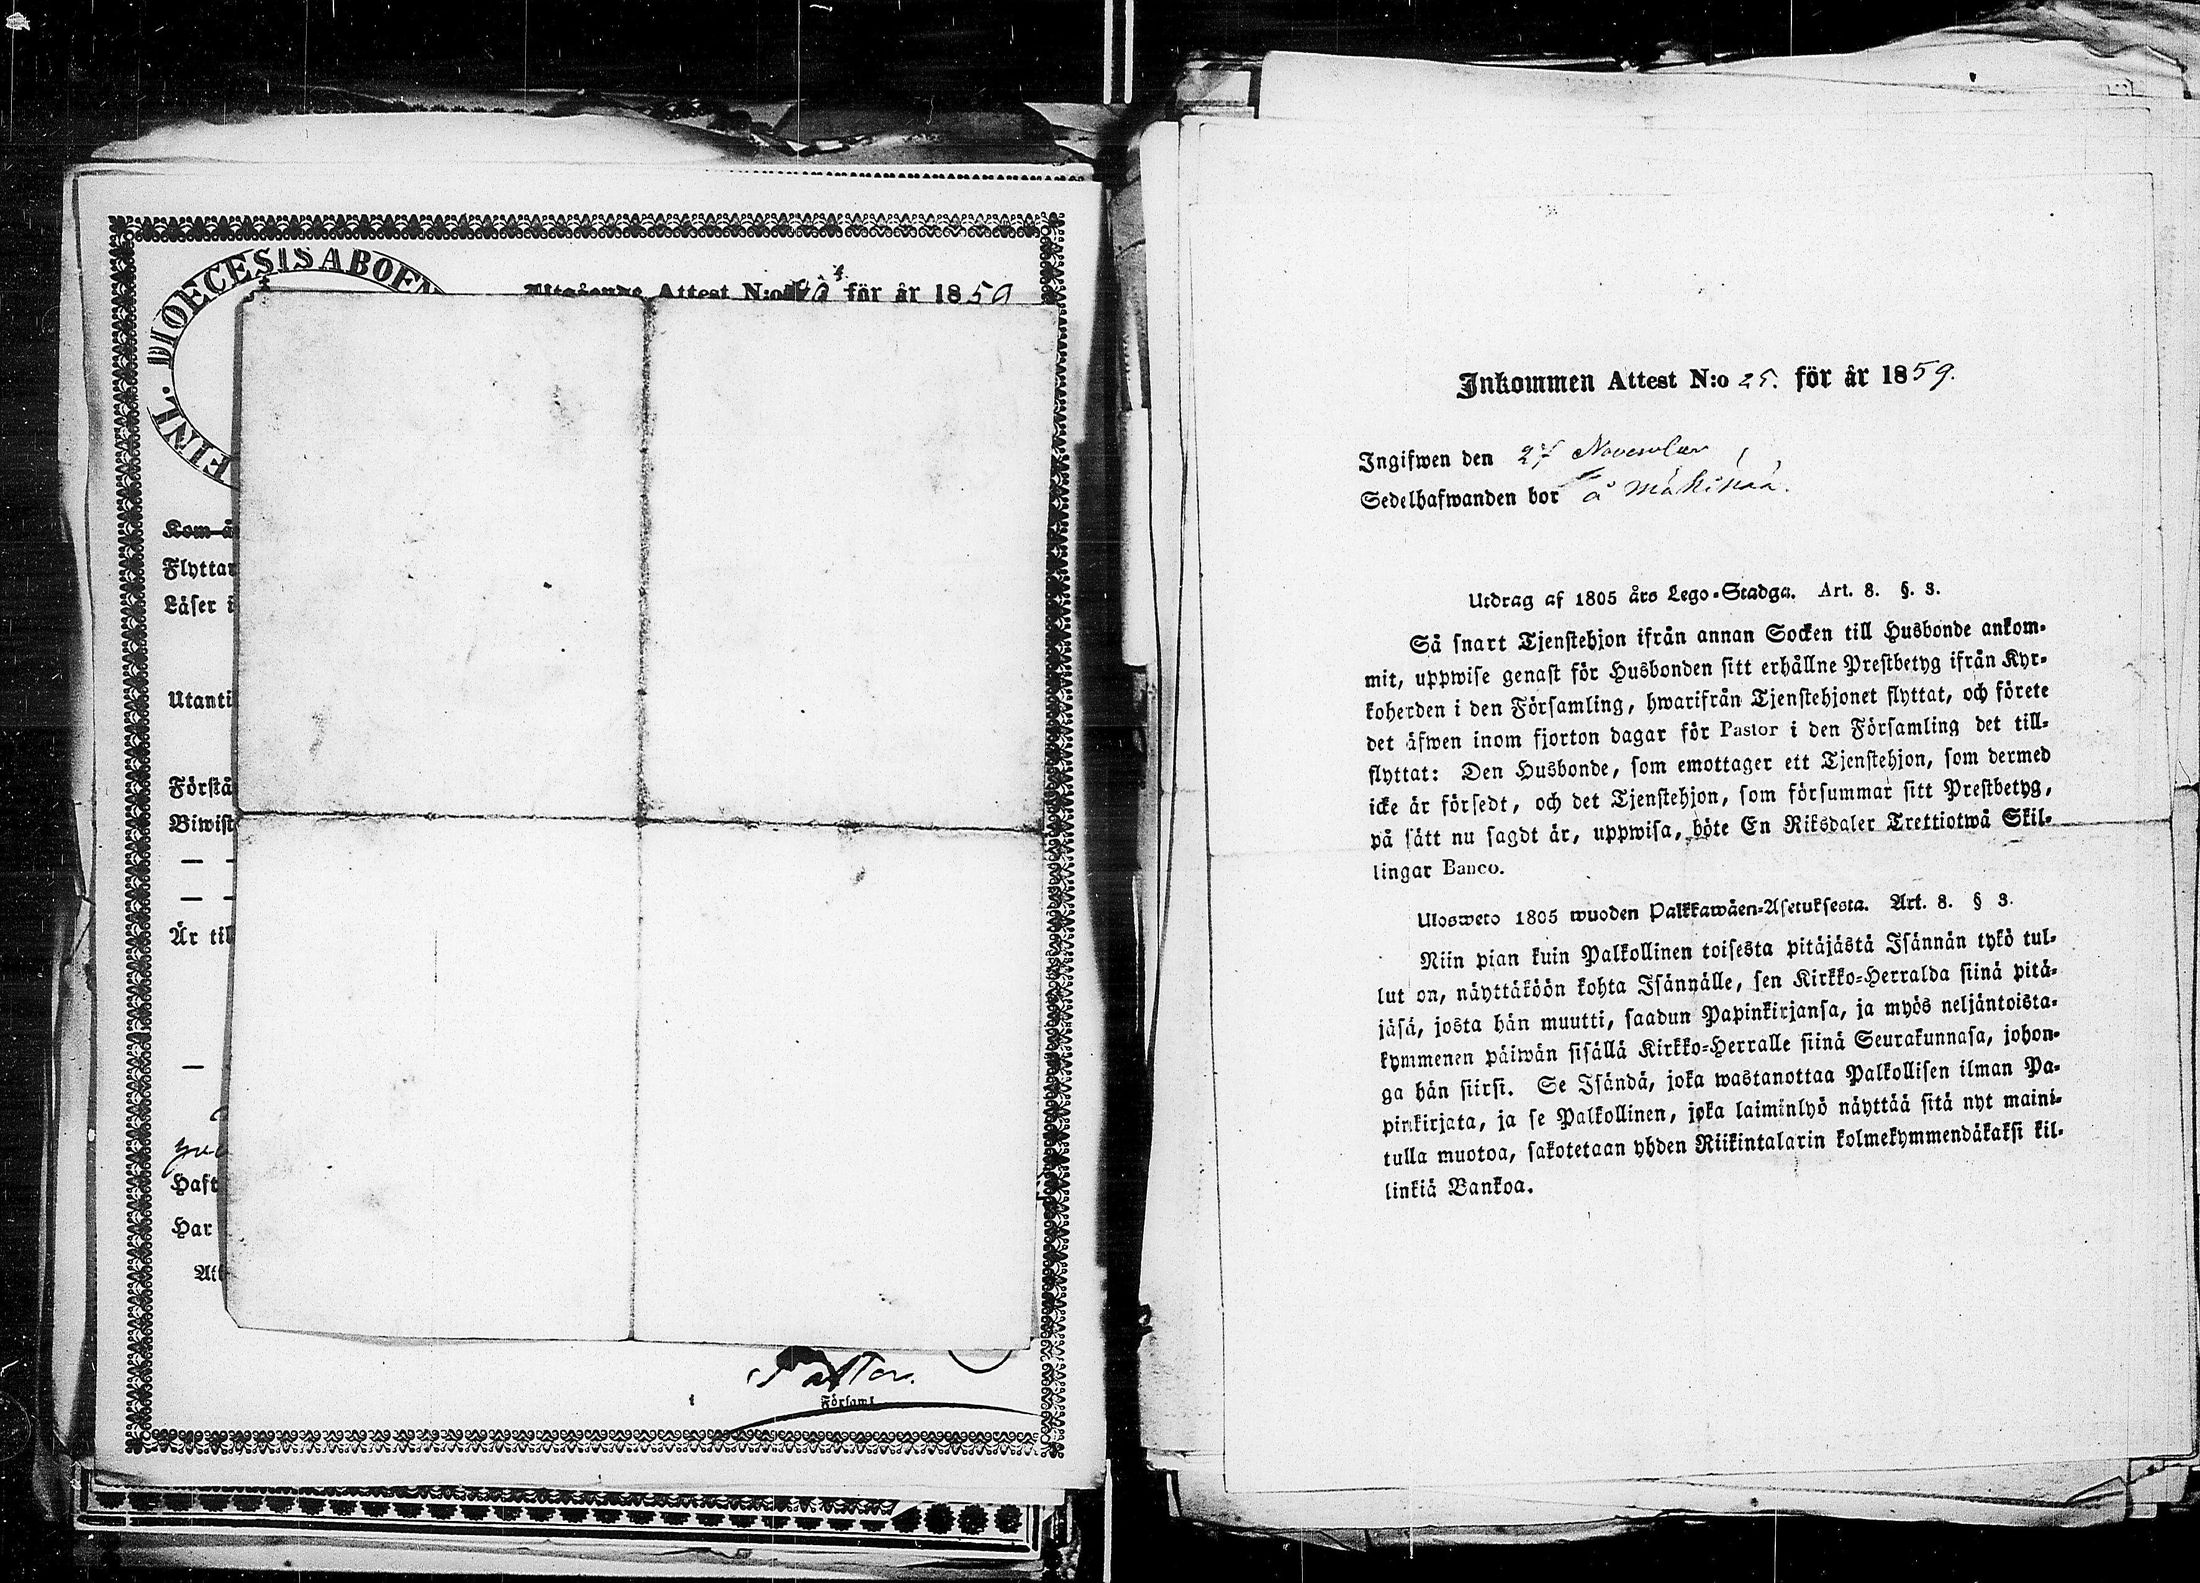 DIOECESIS ABOEN
FINL.
Utgående Attest N:o för år 1859
Kom
Flyttar
Läser i
Utantil
Förstå
Biwist
Är til
Haft
Har
Pastor.
Församl
Inkommen Attest N:o 25. för år 1859.
Ingifwen den 27 November
Sedelhafwanden bor å
Utdrag af 1805 års Lego-Stadga. Art. 8. §. 3.
Så snart Tjenstehjon ifrån annan Socken till Husbonde ankom-
mit, uppwise genast för Husbonden sitt erhållne Prestbetyg ifrån Kyr-
koherden i den Församling, hwarifrån Tjenstehjonet flyttat, och förete
det äfwen inom fjorton dagar för Pastor i den Församling det till-
flyttat: Den Husbonde, som emottager ett Tjenstehjon, som dermed
icke är försedt, och det Tjenstehjon, som försummar sitt Prestbetyg,
på sätt nu sagdt är, uppwisa, böte En Riksdaler Trettiotwå Skil-
lingar Banco.
Ulosweto 1805 wuoden Palkkawäen-Asetuksesta. Art. 8. § 3.
Niin pian kuin Palkollinen toisesta pitäjästä Isännän tykö tul-
lut on, näyttäköön kohta Isännälle, sen Kirkko-Herralda siinä pitä-
jäsä, josta hän muutti, saadun Papinkirjansa, ja myös neljäntoista-
kymmenen päiwän sisällä Kirkko-Herralle siinä Seurakunnasa, johon-
ga hän siirsi. Se Isändä, joka wastanottaa Palkollisen ilman Pa-
pinkirjata, ja se Palkollinen, joka laiminlyö näyttää sitä nyt maini-
tulla muotoa, sakotetaan yhden Riikintalarin kolmekymmendäkaksi kil-
linkiä Bankoa.